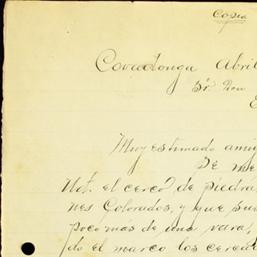 Copia
Covadonga Abril
Sr. Don
Muy estimado amig
De me
Ud. el cerco de piedra
nes Colorados, y que su
poco mas de una vara,
do el marco los cerca